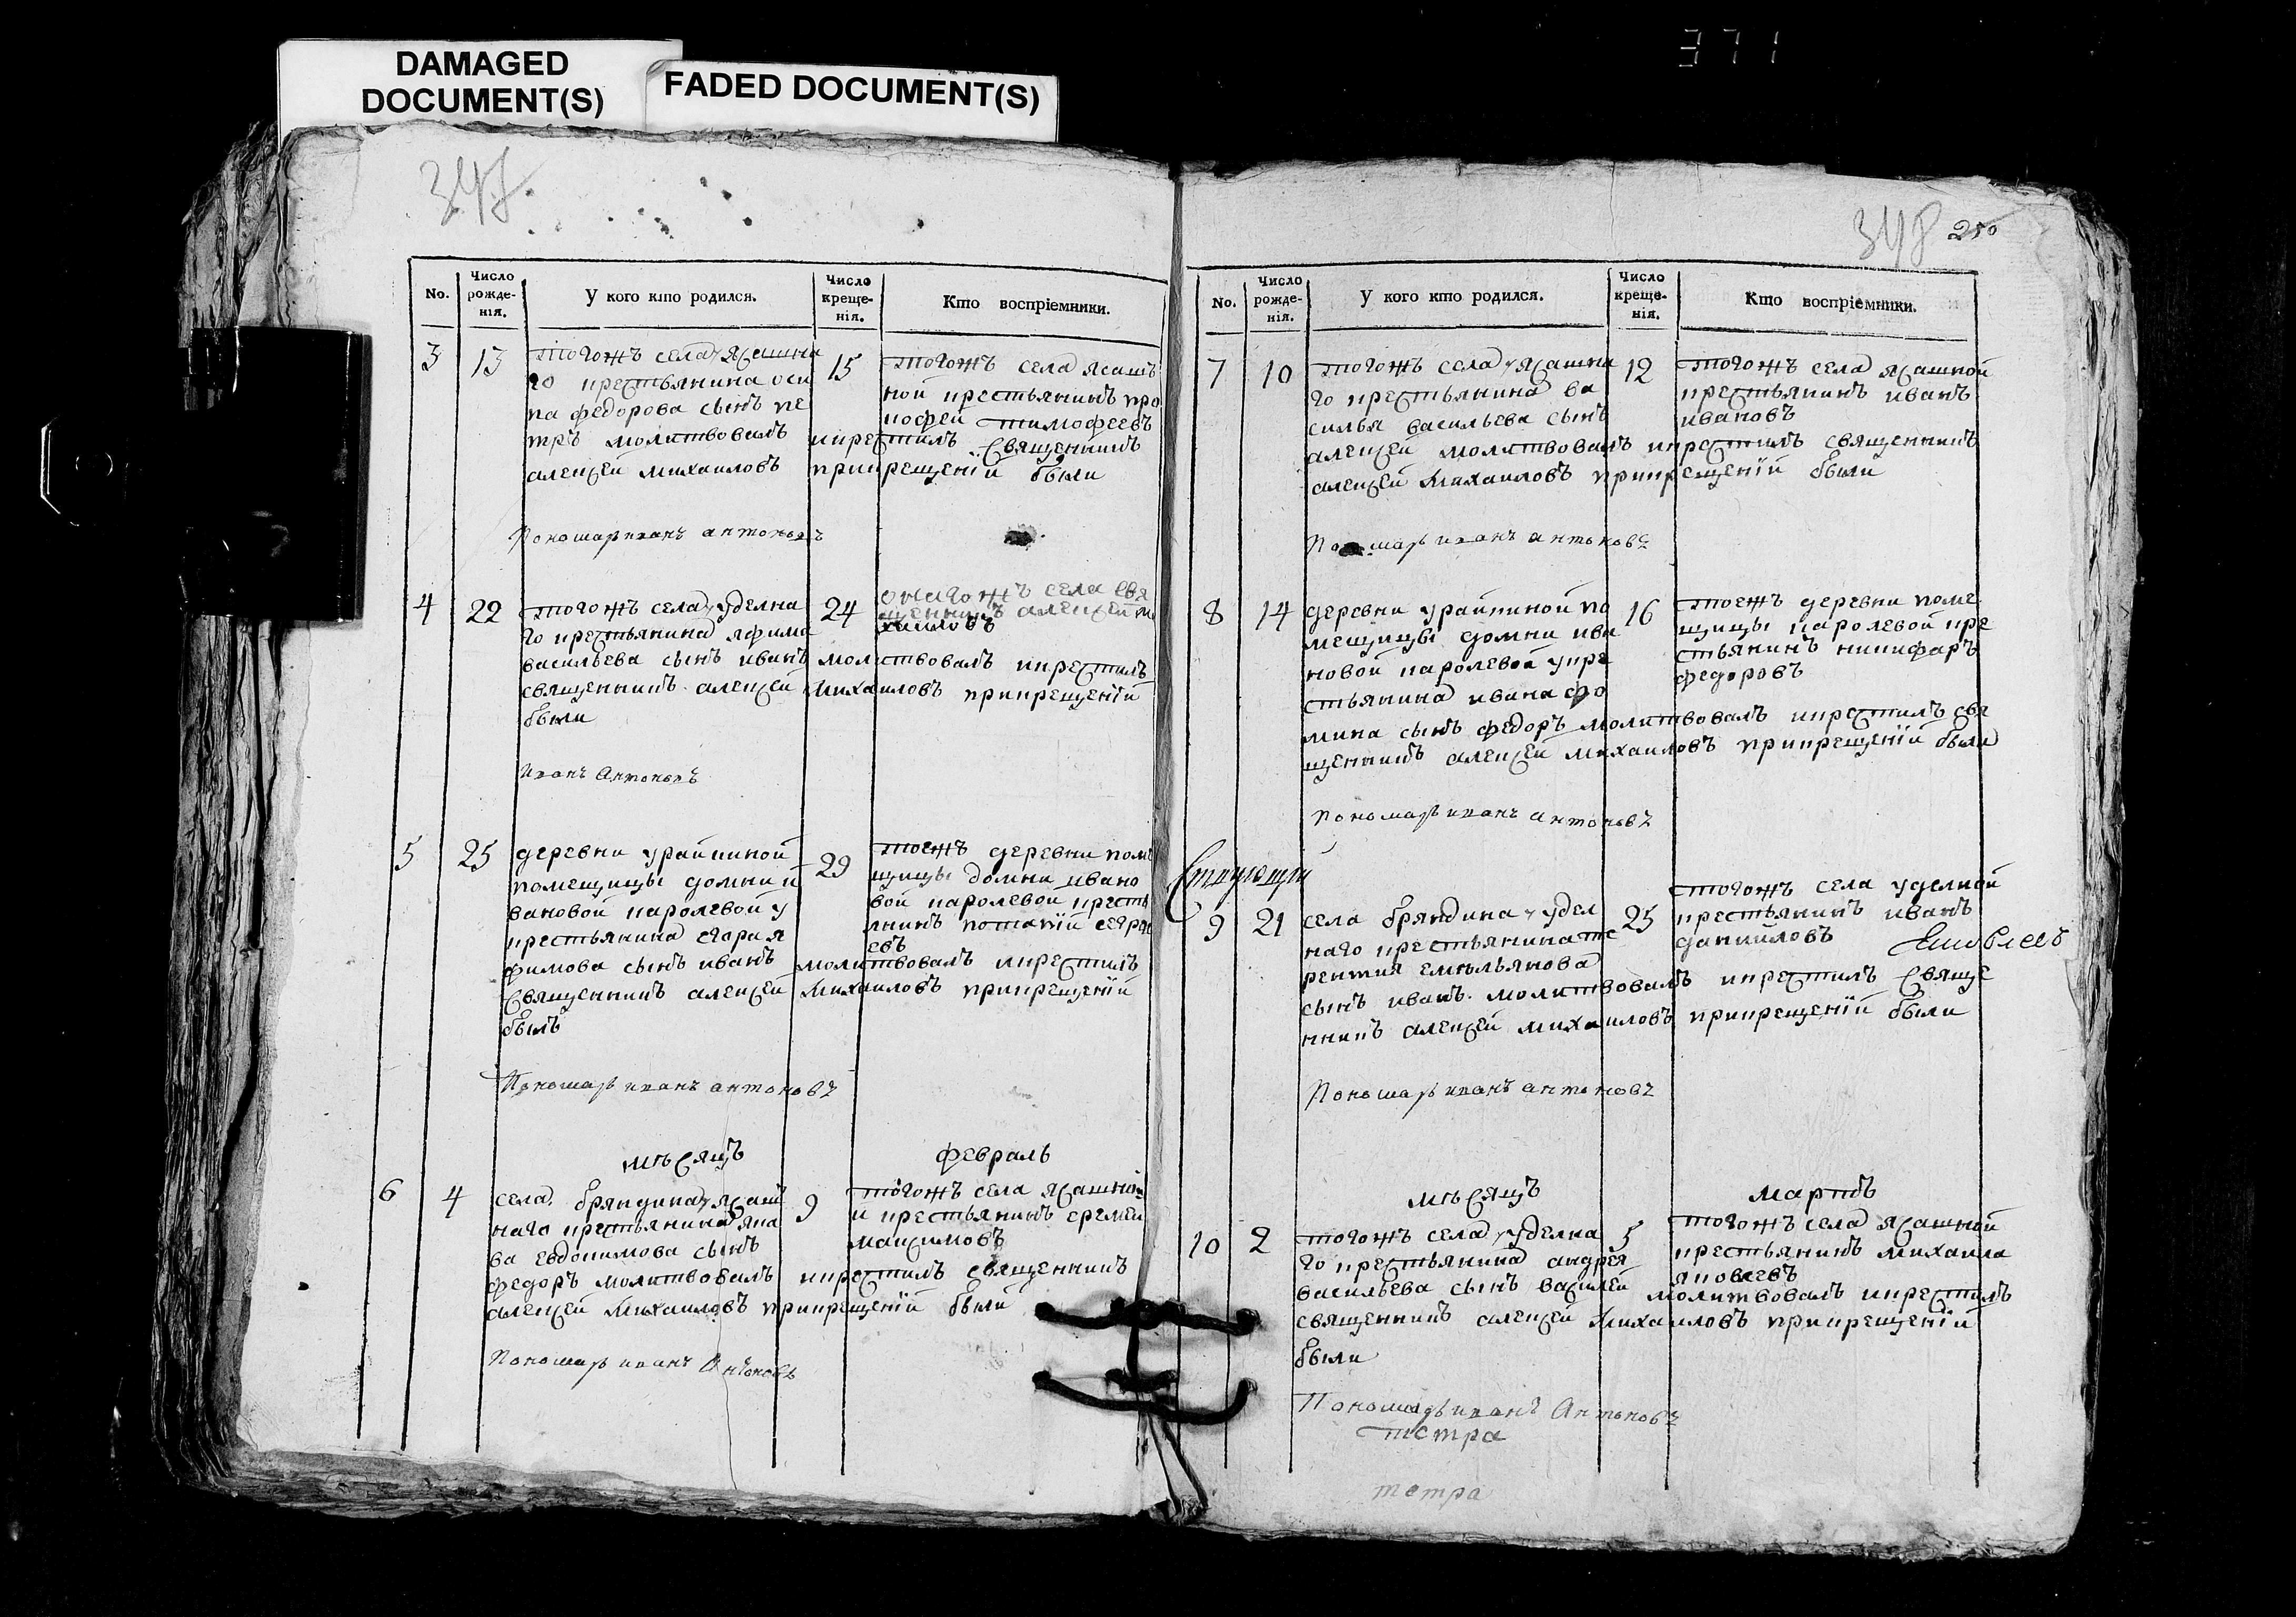 DAMAGED
DOCUMENT(S)
FADED DOCUMENT(S)
371
347
No.
Число рожденія.
У кого кто родился.
Число крещенія.
Кто воспріемники.
3
13
тогожъ села уясашна
го крестьянина оси
па федорова сынъ пе
тръ молитвовалъ икрестилъ священникъ
алексей михаиловъ прикрещенїи были
15
тогожъ села ясаш
ной крестьянинъ про
кофей тимофеевъ
Пономарь иванъ антоновъ
4
22
тогожъ села уделна
го крестьянина яфима
васильева сынъ иванъ молитвовалъ икрестилъ
священникъ алексей михаиловъ прикрещенїи
были
24
села свя
щенникъ алексей ми
хаиловъ
иванъ Антоновъ
5
25
деревни урайкиной
помещицы домни и
вановой каролевой у
крестьянина егора я
фимова сынъ иванъ молитвовалъ икрестилъ
священникъ алексей михаиловъ прикрещенїи
былъ
29
тоежъ деревни поме
щицы домни ивано
вой каролевой кресть
янинъ
евъ
Пономарь иванъ антоновъ
мѣсяцъ февраль
6
4
села бряндина уясаш
наго крестьянина яка
ва евдокимова сынъ
федоръ молитвовалъ икрестилъ священникъ
алексей михаиловъ прикрещенїи были
9
тогожъ села ясашно
й крестьянинъ еремеи
максимовъ
Пономарь иванъ Антоновъ
348 250
No.
Число рожденія.
У кого кто родился.
Число крещенія.
Кто воспріемники.
7
10
тогожъ села уясашна
го крестьянина ва
силья васильева сынъ
алексей молитвовалъ икрестилъ священникъ
алексей михаиловъ прикрещенїи были
12
тогожъ села ясашной
крестьянинъ иванъ
ивановъ
иванъ антоновъ
8
14
деревни урайкиной по
мещицы домни ива
новой каролевой укре
стьянина ивана фо
мина сынъ федоръ молитвовалъ икрестилъ свя
щенникъ алексей михаиловъ прикрещенїи были
16
тоежъ деревни поме
щицы каролевой кре
стьянинъ никифаръ
федоровъ
Пономарь иванъ антоновъ
9
21
села бряндина у удел
наго крестьянина те
рентия емельянова
сынъ иванъ молитвовалъ икрестилъ свяще
нникъ алексей михаиловъ прикрещенїи были
25
тогожъ села уделной
крестьянинъ иванъ
даниловъ
Пономарь иванъ антоновъ
мѣсяцъ мартъ
10
2
тогожъ села у уделна
го крестьянина андрея
васильева сынъ василей молитвовалъ икрестилъ
священникъ алексей михаиловъ прикрещенїи
были
5
тогожъ села ясашной
крестьянинъ михаила
яковлевъ
Пономарь иванъ Антоновъ
тетра
тетра